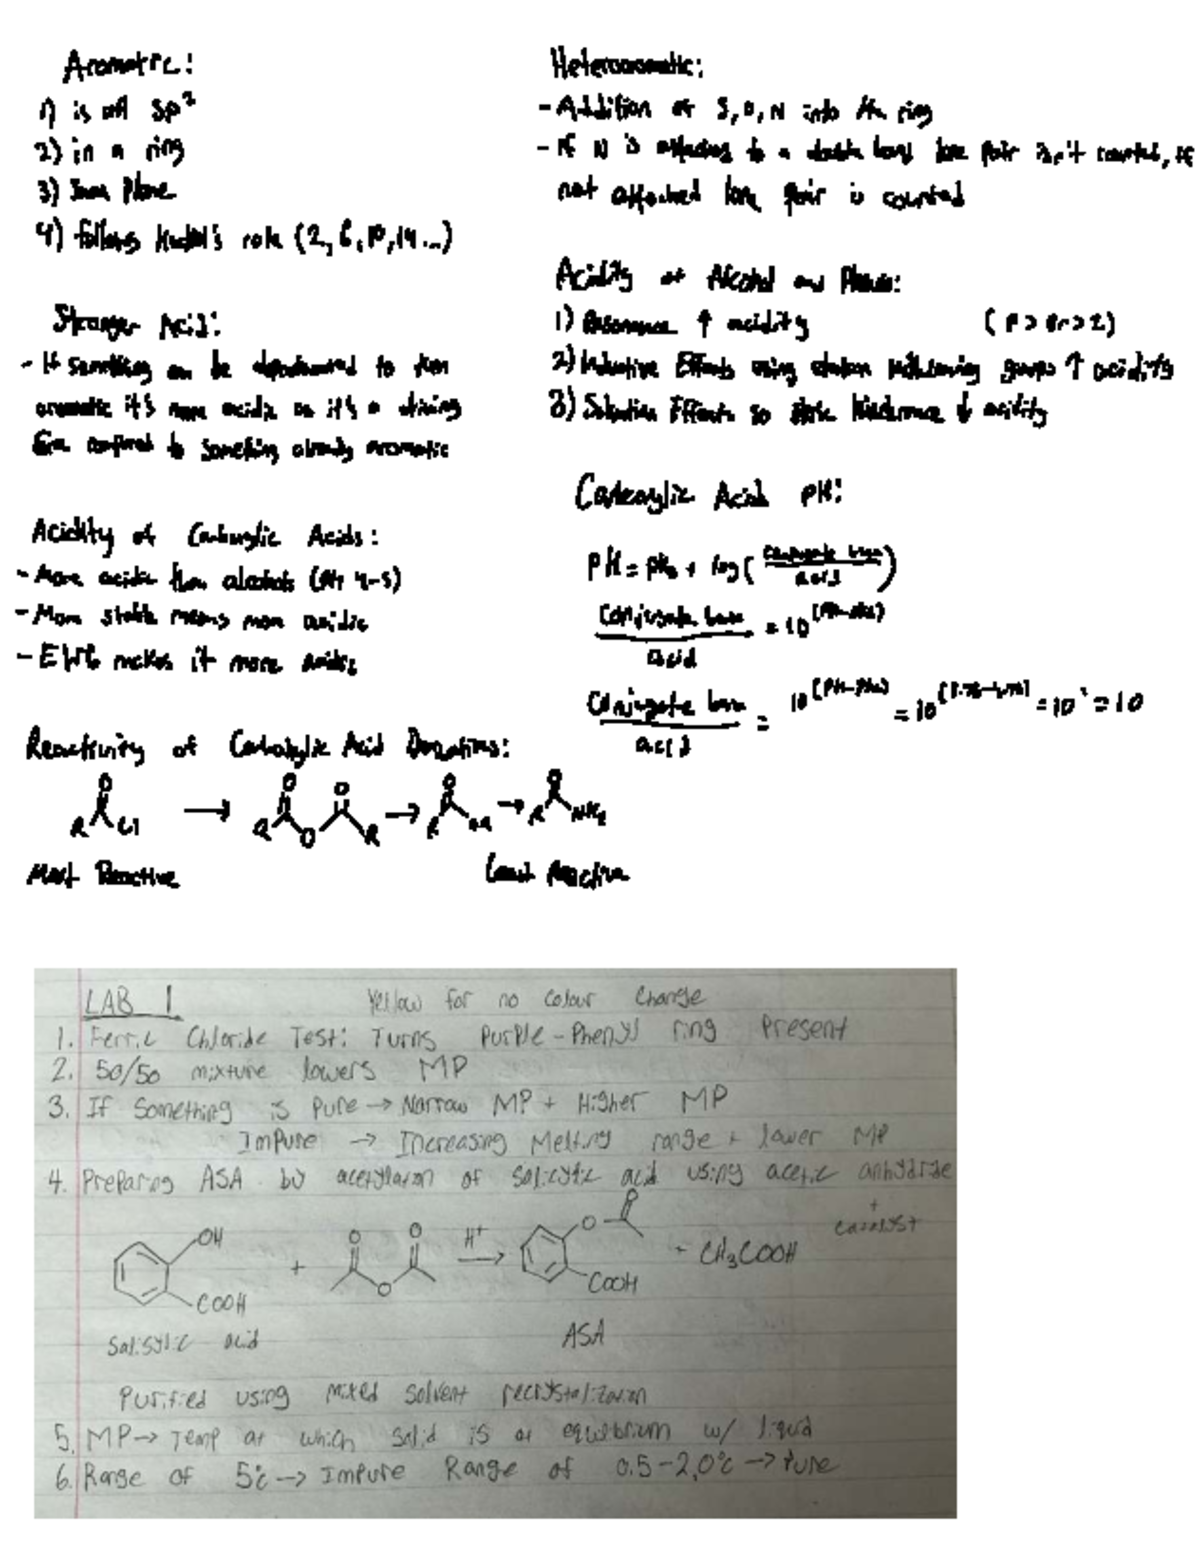 Aromatic:
1) is all sp²
2) in a ring
3) Same Plane
4) follows Huckel's rule (2, 6, 10, 14...)
Stronger Acid:
- If something can be deprotonated to turn
aromatic it's more acidic as it's a driving
compared to something already aromatic
Acidity of Carboxylic Acids:
- More acidic than alcohols (4-5)
- More stable means more acidic
- EWG makes it more acidic
Reactivity of Carboxylic Acid Derivatives:
O O O O O
R Cl → R O R → R OR → R NH₂
Most Reactive Least Reactive
Heteroaromatic:
- Addition of S, O, N into the ring
- If N is attaching to a double bond lone pair isn't counted, if
not attached lone pair is counted
Acidity of Alcohol and Phenols:
1) Resonance ↑ acidity
2) Inductive Effects using electron withdrawing groups ↑ acidity
3) Solvation Effects so steric hinderance ↓ acidity
Carboxylic Acid pH:
pH = pKa + log(conjugate base
acid)
conjugate base = 10^(pH-pKa)
acid
Conjugate base = 10^(pH-pKa) = 10 = 10¹ = 10
acid
LAB 1 Yellow for no colour change
1. Ferric Chloride Test: Turns Purple - Phenyl ring Present
2. 50/50 mixture lowers MP
3. If something is Pure → Narrow MP + Higher MP
Impure → Increasing Melting range + lower MP
4. Preparing ASA by acetylation of salicylic acid using acetic anhydride
+
catalyst
OH O O H⁺ O O
+ → - CH₃COOH
COOH O COOH
Salisylic acid ASA
Purified using mixed solvent recrystalization
5. MP → Temp at which solid is at equilbrium w/ liquid
6. Range of 5°c → Impure Range of 0.5-2.0°c → Pure